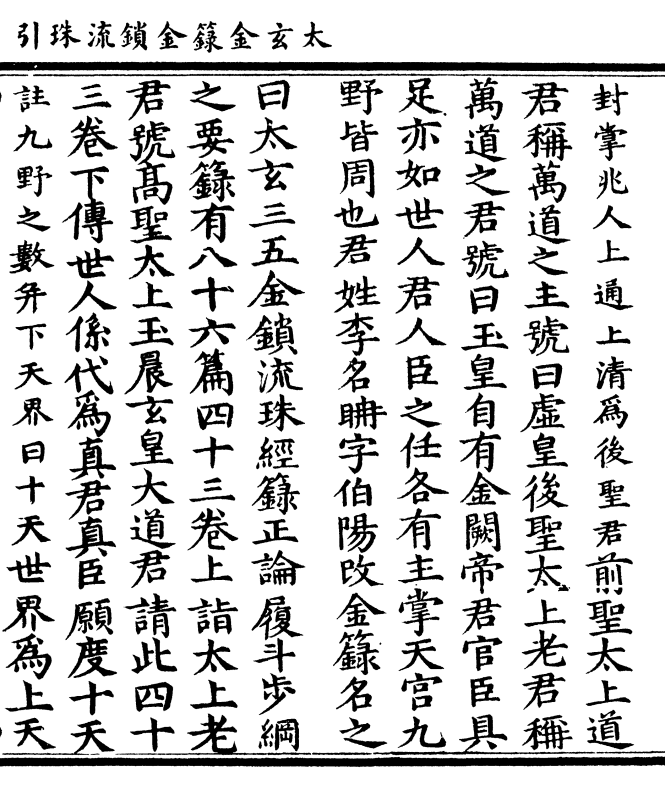 太玄金籙金鎖流珠引
封掌兆人上通上清爲後聖君前聖太上道
君稱萬道之主號曰虛皇後聖太上老君稱
萬道之君號曰玉皇自有金闕帝君官臣具
足亦如世人君人臣之任各有主掌天宮九
野皆周也君姓李名𣆀字伯陽改金籙名之
曰太玄三五金鎖流珠經籙正論履斗步綱
之要籙有八十六篇四十三卷上詣太上老
君號髙聖太上玉晨玄皇大道君請此四十
三卷下傳世人係代爲真君真臣願度十天
註九野之數并下天界曰十天世界爲上天